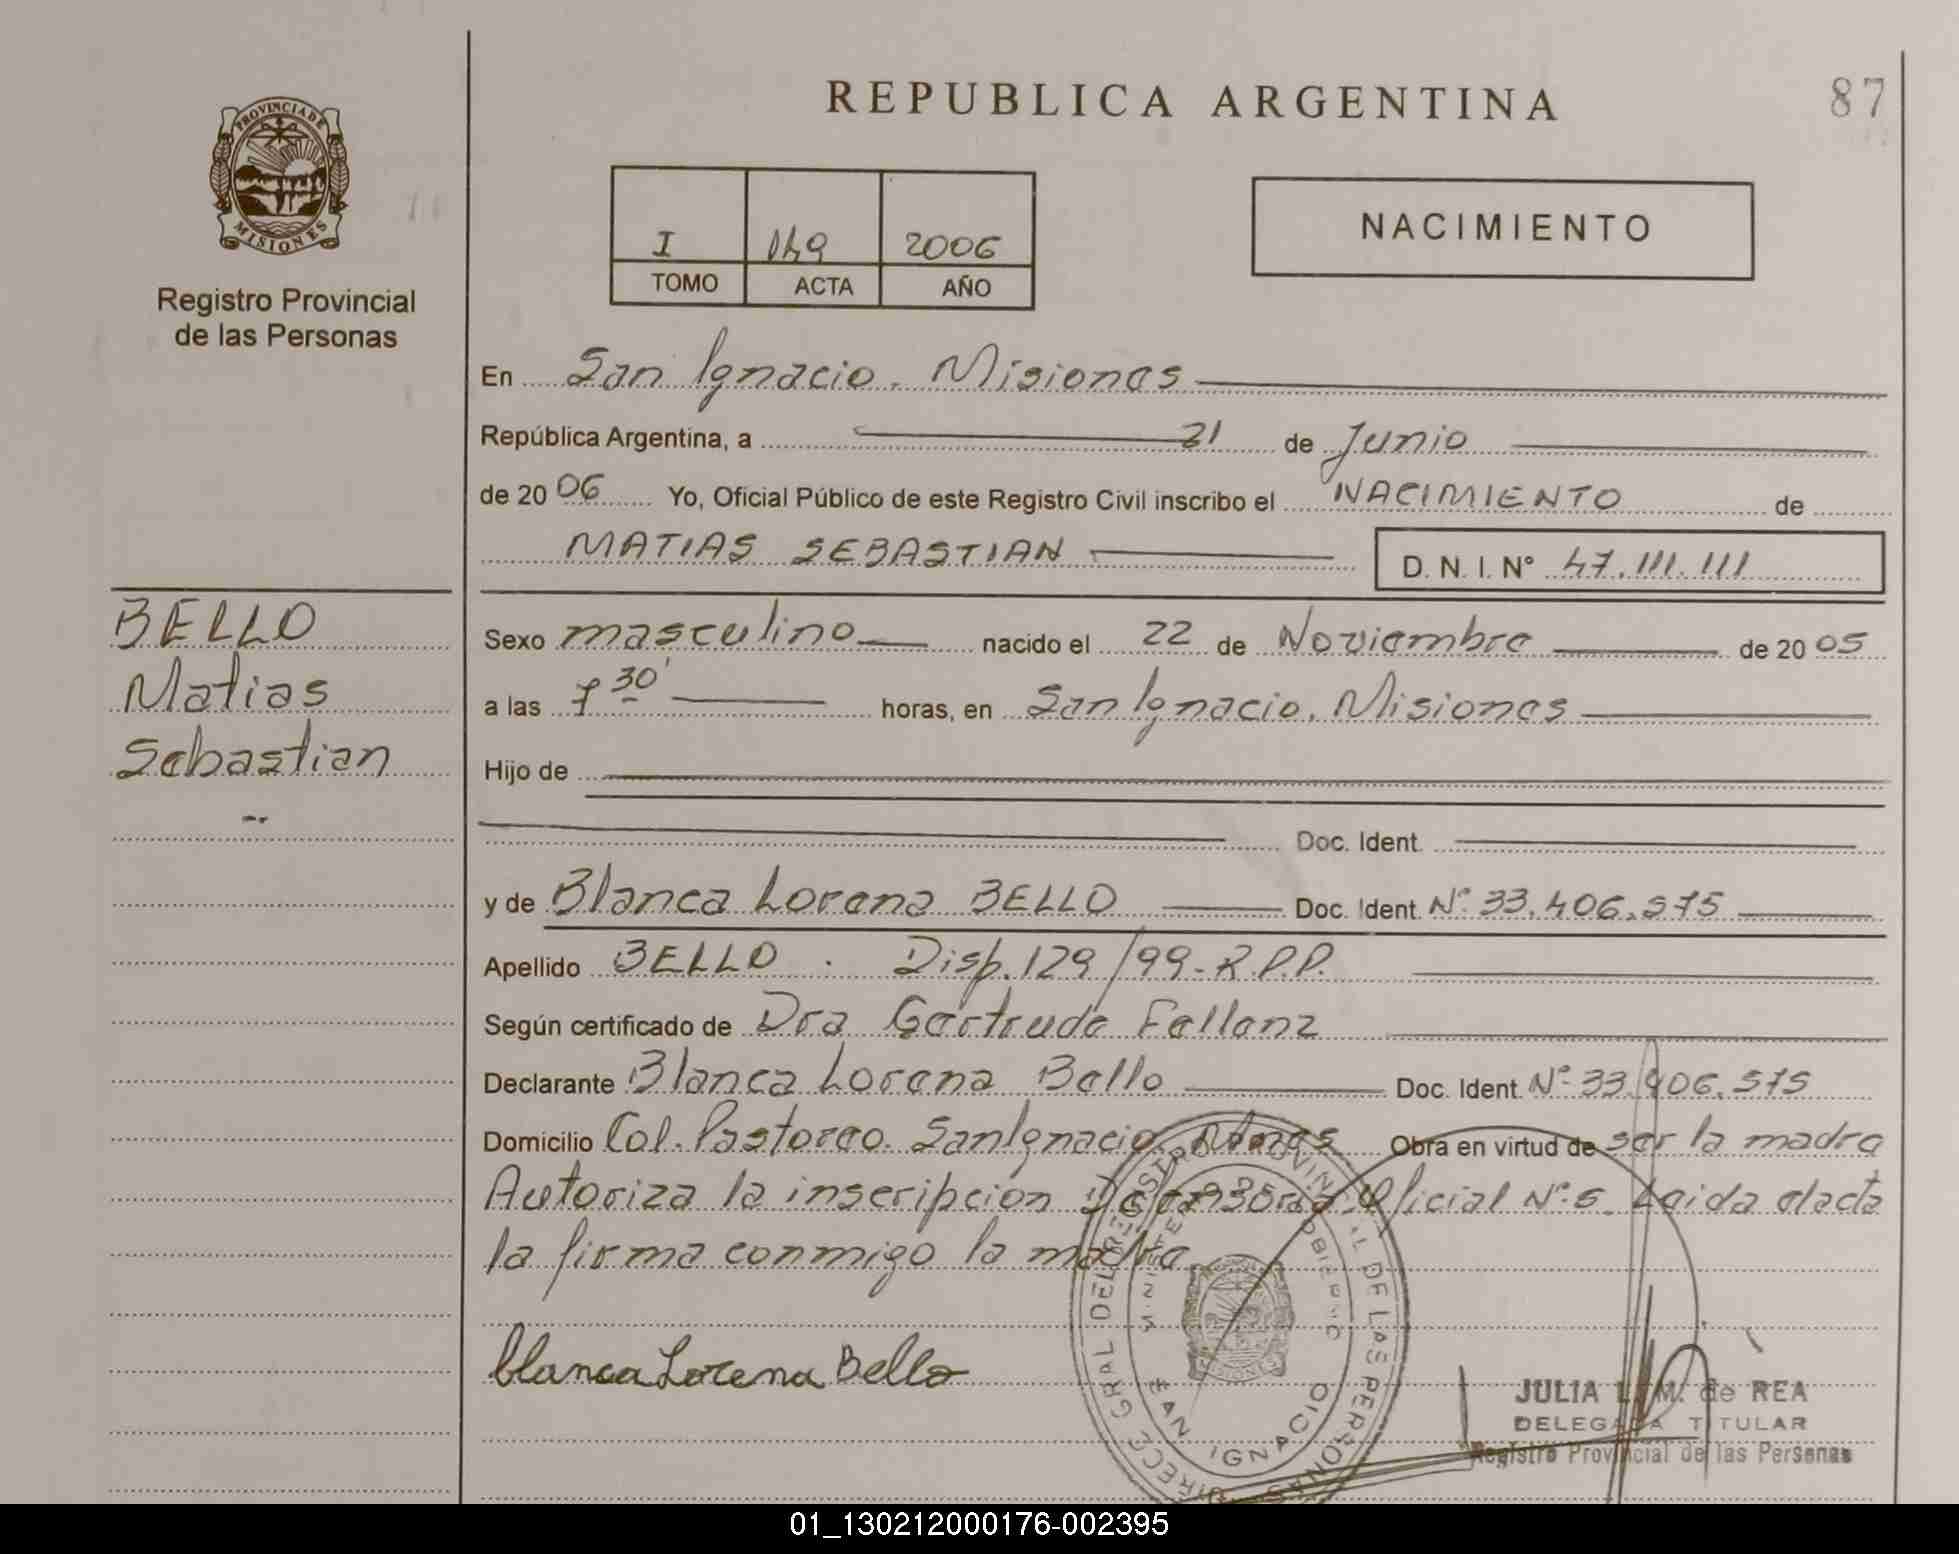 REPUBLICA ARGENTINA
87
PROVINCIA DE
MISIONES
Registro Provincial
de las Personas
I 149 2006
TOMO ACTA AÑO
NACIMIENTO
En San Ignacio. Misiones
República Argentina, a 21 de Junio
de 20 06 Yo, Oficial Público de este Registro Civil inscribo el NACIMIENTO de
MATIAS SEBASTIAN D. N. I. N° 47.111.111
BELLO
Matias
Sebastian
Sexo masculino nacido el 22 de Noviembre de 20 05
a las 7 30' horas, en San Ignacio. Misiones
Hijo de
Doc. Ident.
y de Blanca Lorena BELLO Doc. Ident. N° 33.406.575
Apellido BELLO . Disp. 129/99-R.P.P.
Según certificado de Dra Gertrude Fallanz
Declarante Blanca Lorena Bello Doc. Ident. N° 33.406.575
Domicilio Col. Pastoreo. San Ignacio. Mnes Obra en virtud de ser la madre
Autoriza la inscripcion Defensora Oficial N° 5. Leida elacta
la firma conmigo la madre
blanca Lorena Bello
DIRECC GRAL DEL REGISTRO PROVINCIAL DE LAS PERSONAS
SAN IGNACIO
JULIA L. M. de REA
DELEGADA TITULAR
Registro Provincial de las Personas
01_130212000176-002395